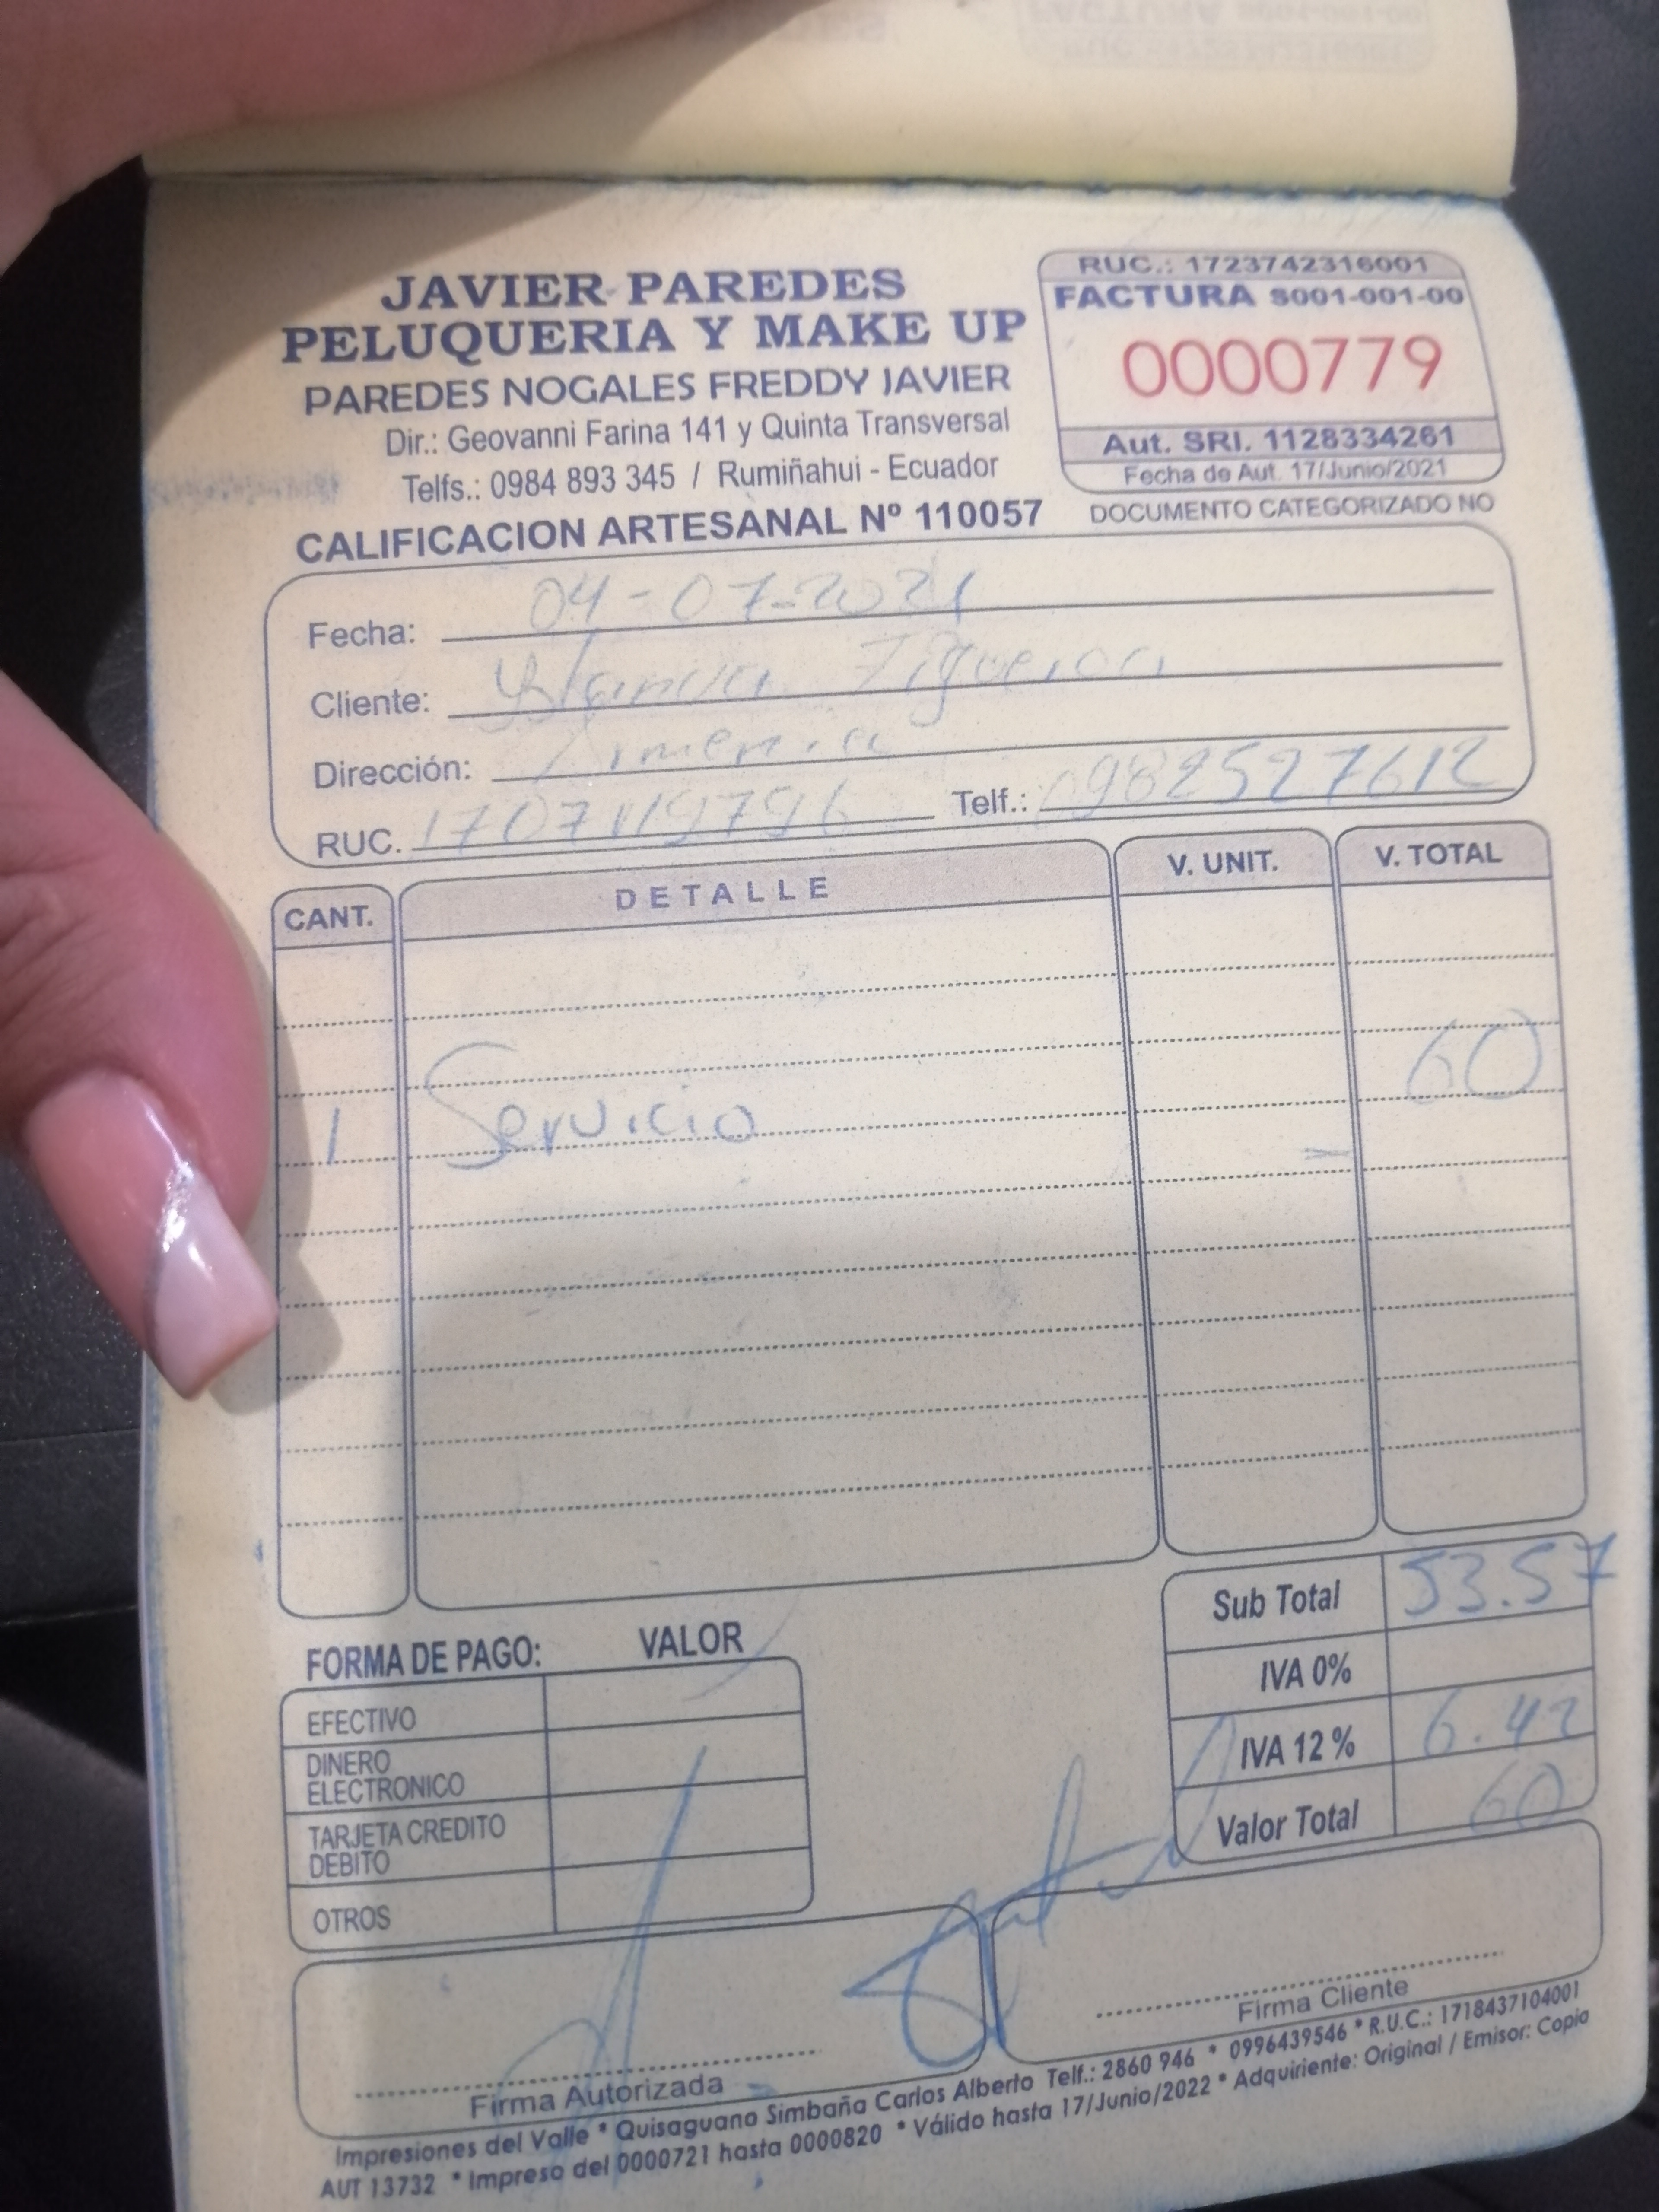 JAVIER PAREDES
PELUQUERIA Y MAKE UP
PAREDES NOGALES FREDDY JAVIER
Dir.: Geovanni Farina 141 y Quinta Transversal
Telfs.: 0984 893 345 / Rumiñahui - Ecuador
CALIFICACION ARTESANAL Nº 110057
RUC.: 1723742316001
FACTURA S001-001-00
0000779
Aut. SRI. 1128334261
Fecha de Aut. 17/Junio/2021
DOCUMENTO CATEGORIZADO NO
Fecha: 04-07-2021
Cliente: Blanca Figueroa
Dirección: Armenia
RUC. Telf.: 0982527612
CANT. DETALLE V. UNIT. V. TOTAL
1 Servicio 60
Sub Total 53.57
IVA 0%
IVA 12 % 6.42
Valor Total 60
FORMA DE PAGO: VALOR
EFECTIVO
DINERO
ELECTRONICO
TARJETA CREDITO
DEBITO
OTROS
Firma Autorizada
Firma Cliente
Impresiones del Valle * Quisaguano Simbaña Carlos Alberto Telf.: 2860 946 * 0996439546 * R.U.C.: 1718437104001
AUT 13732 * Impreso del 0000721 hasta 0000820 * Válido hasta 17/Junio/2022 * Adquiriente: Original / Emisor: Copia